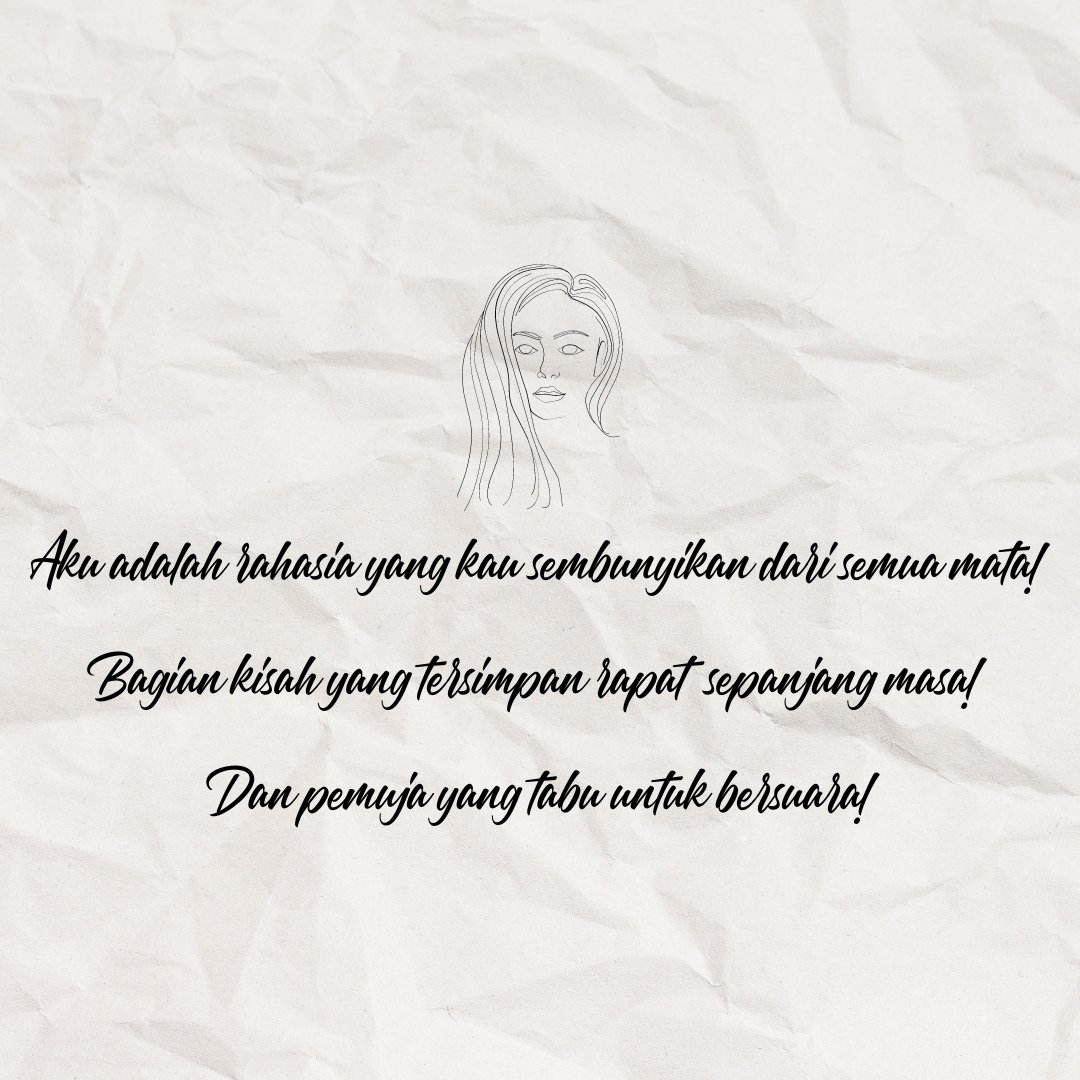 Aku adalah rahasia yang kau sembunyikan dari semua mata!
Bagian kisah yang tersimpan rapat sepanjang masa!
Dan pemuja yang tabu untuk bersuara!